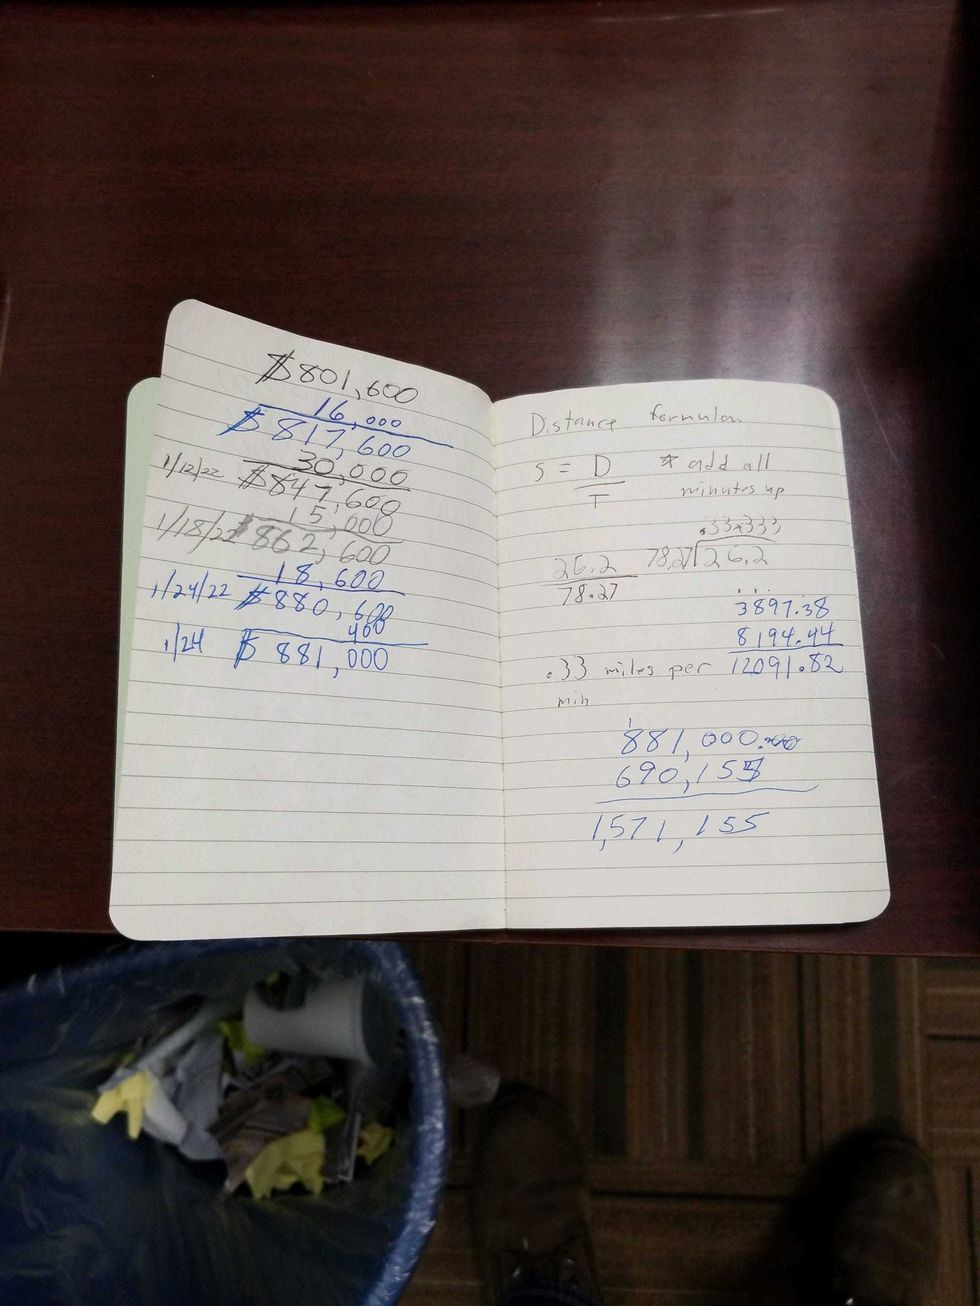 $801,600
16,000
$817,600
30,000
1/12/22 $847,600
15,000
1/18/22 $862,600
18,600
1/24/22 $880,600
400
1/24 $881,000
Distance formulan
S = D
T
* add all
minutes up
.33333
26.2 78.27 26.2
78.27
3897.38
8194.44
12091.82
.33 miles per
min
1
881,000.00
690,155
1,571,155